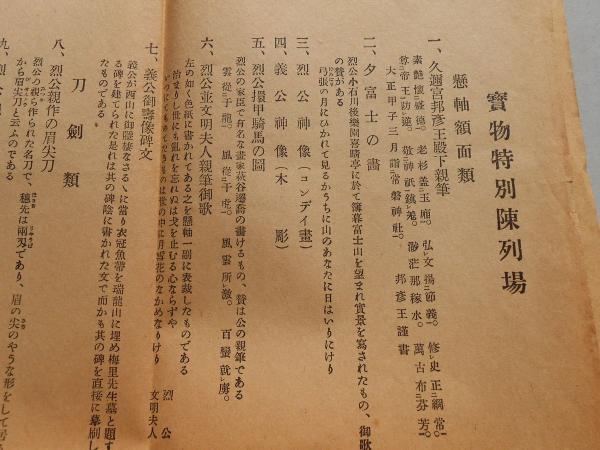 寶物特別陳列場
懸軸額面類
一、久邇宮邦彦王殿下親筆
素艶懐盛徳。老杉蓋玉廟。弘文揚節義。修史正綱常。
尊帝王訪逹。敬神祇鎮 渺茫那稼水。萬古布芬芳。
大正甲子三月謁常磐神社 邦彦王謹書
二、夕富士の畵
烈公小石川後樂園喜晴亭に於て薄暮富士山を望まれ實景を寫されたもの、御歌
の賛がある
弓張の月にひかれて見るかうちに山のあなたに日はいりにけり
三、烈公神像(コンデイ畫)
四、義公神像(木彫)
五、烈公擐甲騎馬の圖
烈公の家臣で有名な畫家萩谷遷喬の畵けるもの、賛は公の親筆である
雲從于龍。風從于虎。風雲所激。百蠻就虜。
六、烈公並文明夫人親筆御歌
左の如く色紙に書かれてある之を懸軸一副に表裁したものである
治まりし世にも亂れを忘れぬは戈を止むる心ならずや 烈公
世の中に月雪花のなかめなりけり 文明夫人
七、義公御壽像碑文
義公が西山に御隱棲なさるゝに當り衣冠魚帶を瑞龍山に埋め梅里先生墓と題す
る碑を建てられた是れは其の碑陰に書かれた文で而かも其の碑を直接に摹刷し
たものである
刀劍類
八、烈公親作の眉尖刀
烈公の親ら作られた名刀で、穗先は兩刃であり、眉の尖のやうな形をして居る
から眉尖刀と云ふのである
九、烈公